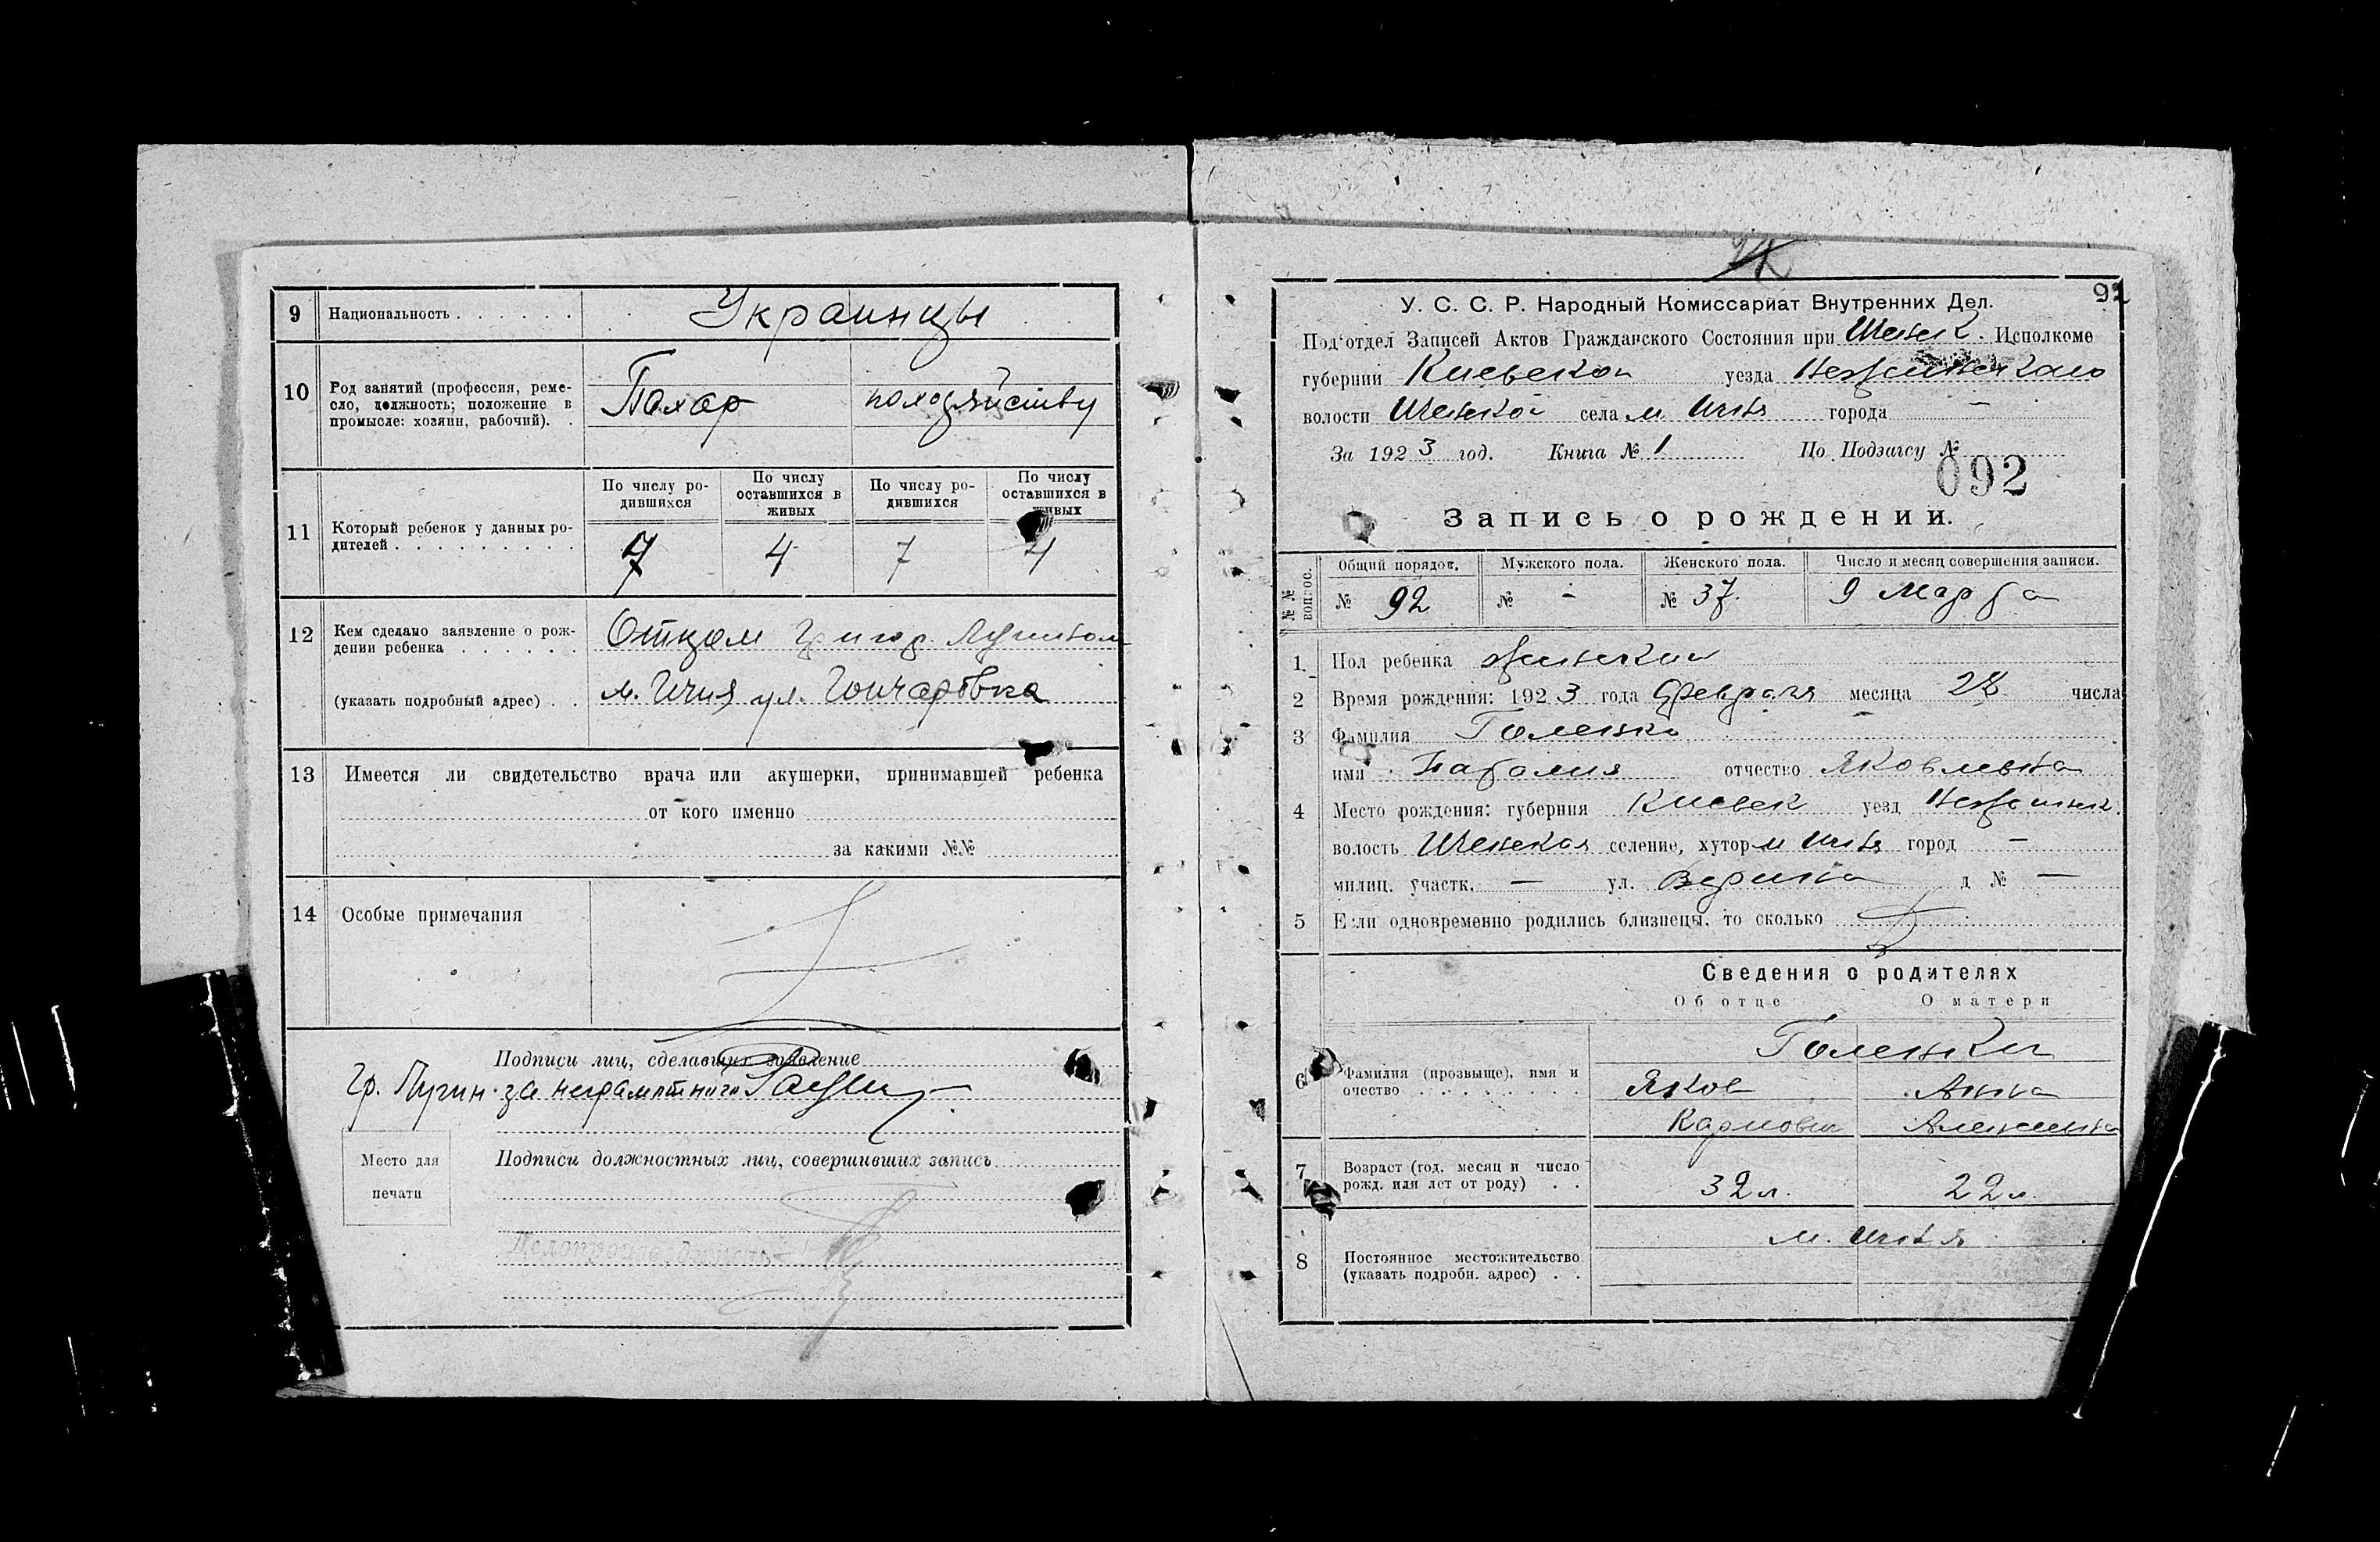 9 Национальность . . . . . . Украинцы
10 Род занятий (профессия, реме-
сло, должность; положение в
промысле: хозяин, рабочий). .
Пахар похозяйству
11 Который ребенок у данных ро-
дителей . . . . . . . . .
По числу ро-
дившихся
По числу
оставшихся в
живых
По числу ро-
дившихся
По числу
оставшихся в
живых
7 4 7 4
12 Кем сделано заявление о рож-
дении ребенка . . . . . . Отцом Григор.
(указать подробный адрес) . . м. Ичня ул. Гончаровка
13 Имеется ли свидетельство врача или акушерки, принимавшей ребенка
от кого именно
за какими №№
14 Особые примечания
Подписи лиц, сделавших заявление
Гр. за неграмотного
Место для
печати
Подписи должностных лиц, совершивших запись
Делопроизводитель
92
У. С. С. Р. Народный Комиссариат Внутренних Дел.
Под'отдел Записей Актов Гражданского Состояния при Ичен. Исполкоме
губернии Киевской уезда
волости Иченской села м. Ичня города –
За 1923 год. Книга № 1 По Подзагсу №
092
Запись о рождении.
№№ вопрос.
Общий порядов. Мужского пола. Женского пола. Число и месяц совершения записи.
№ 92 № - № 37. 9 Марта
1. Пол ребенка женский
2 Время рождения: 1923 года Февраля месяца 28 числа
3 Фамилия Голенко
имя Наталия отчество Яковлевна
4 Место рождения: губерния Киевск уезд
волость Иченская селение, хутор м Ичня город –
милиц. участк. — ул. д № —
5 Если одновременно родились близнецы, то сколько
Сведения о родителях
Об отце О матери
6 Фамилия (прозвыще), имя и
очество . . . . . . . . .
Голенки
Яков Анна
Карпович
7 Возраст (год, месяц и число
рожд. или лет от роду) . .
32 л. 22 л.
8 Постоянное местожительство
(указать подробн. адрес) . .
м. Ичня